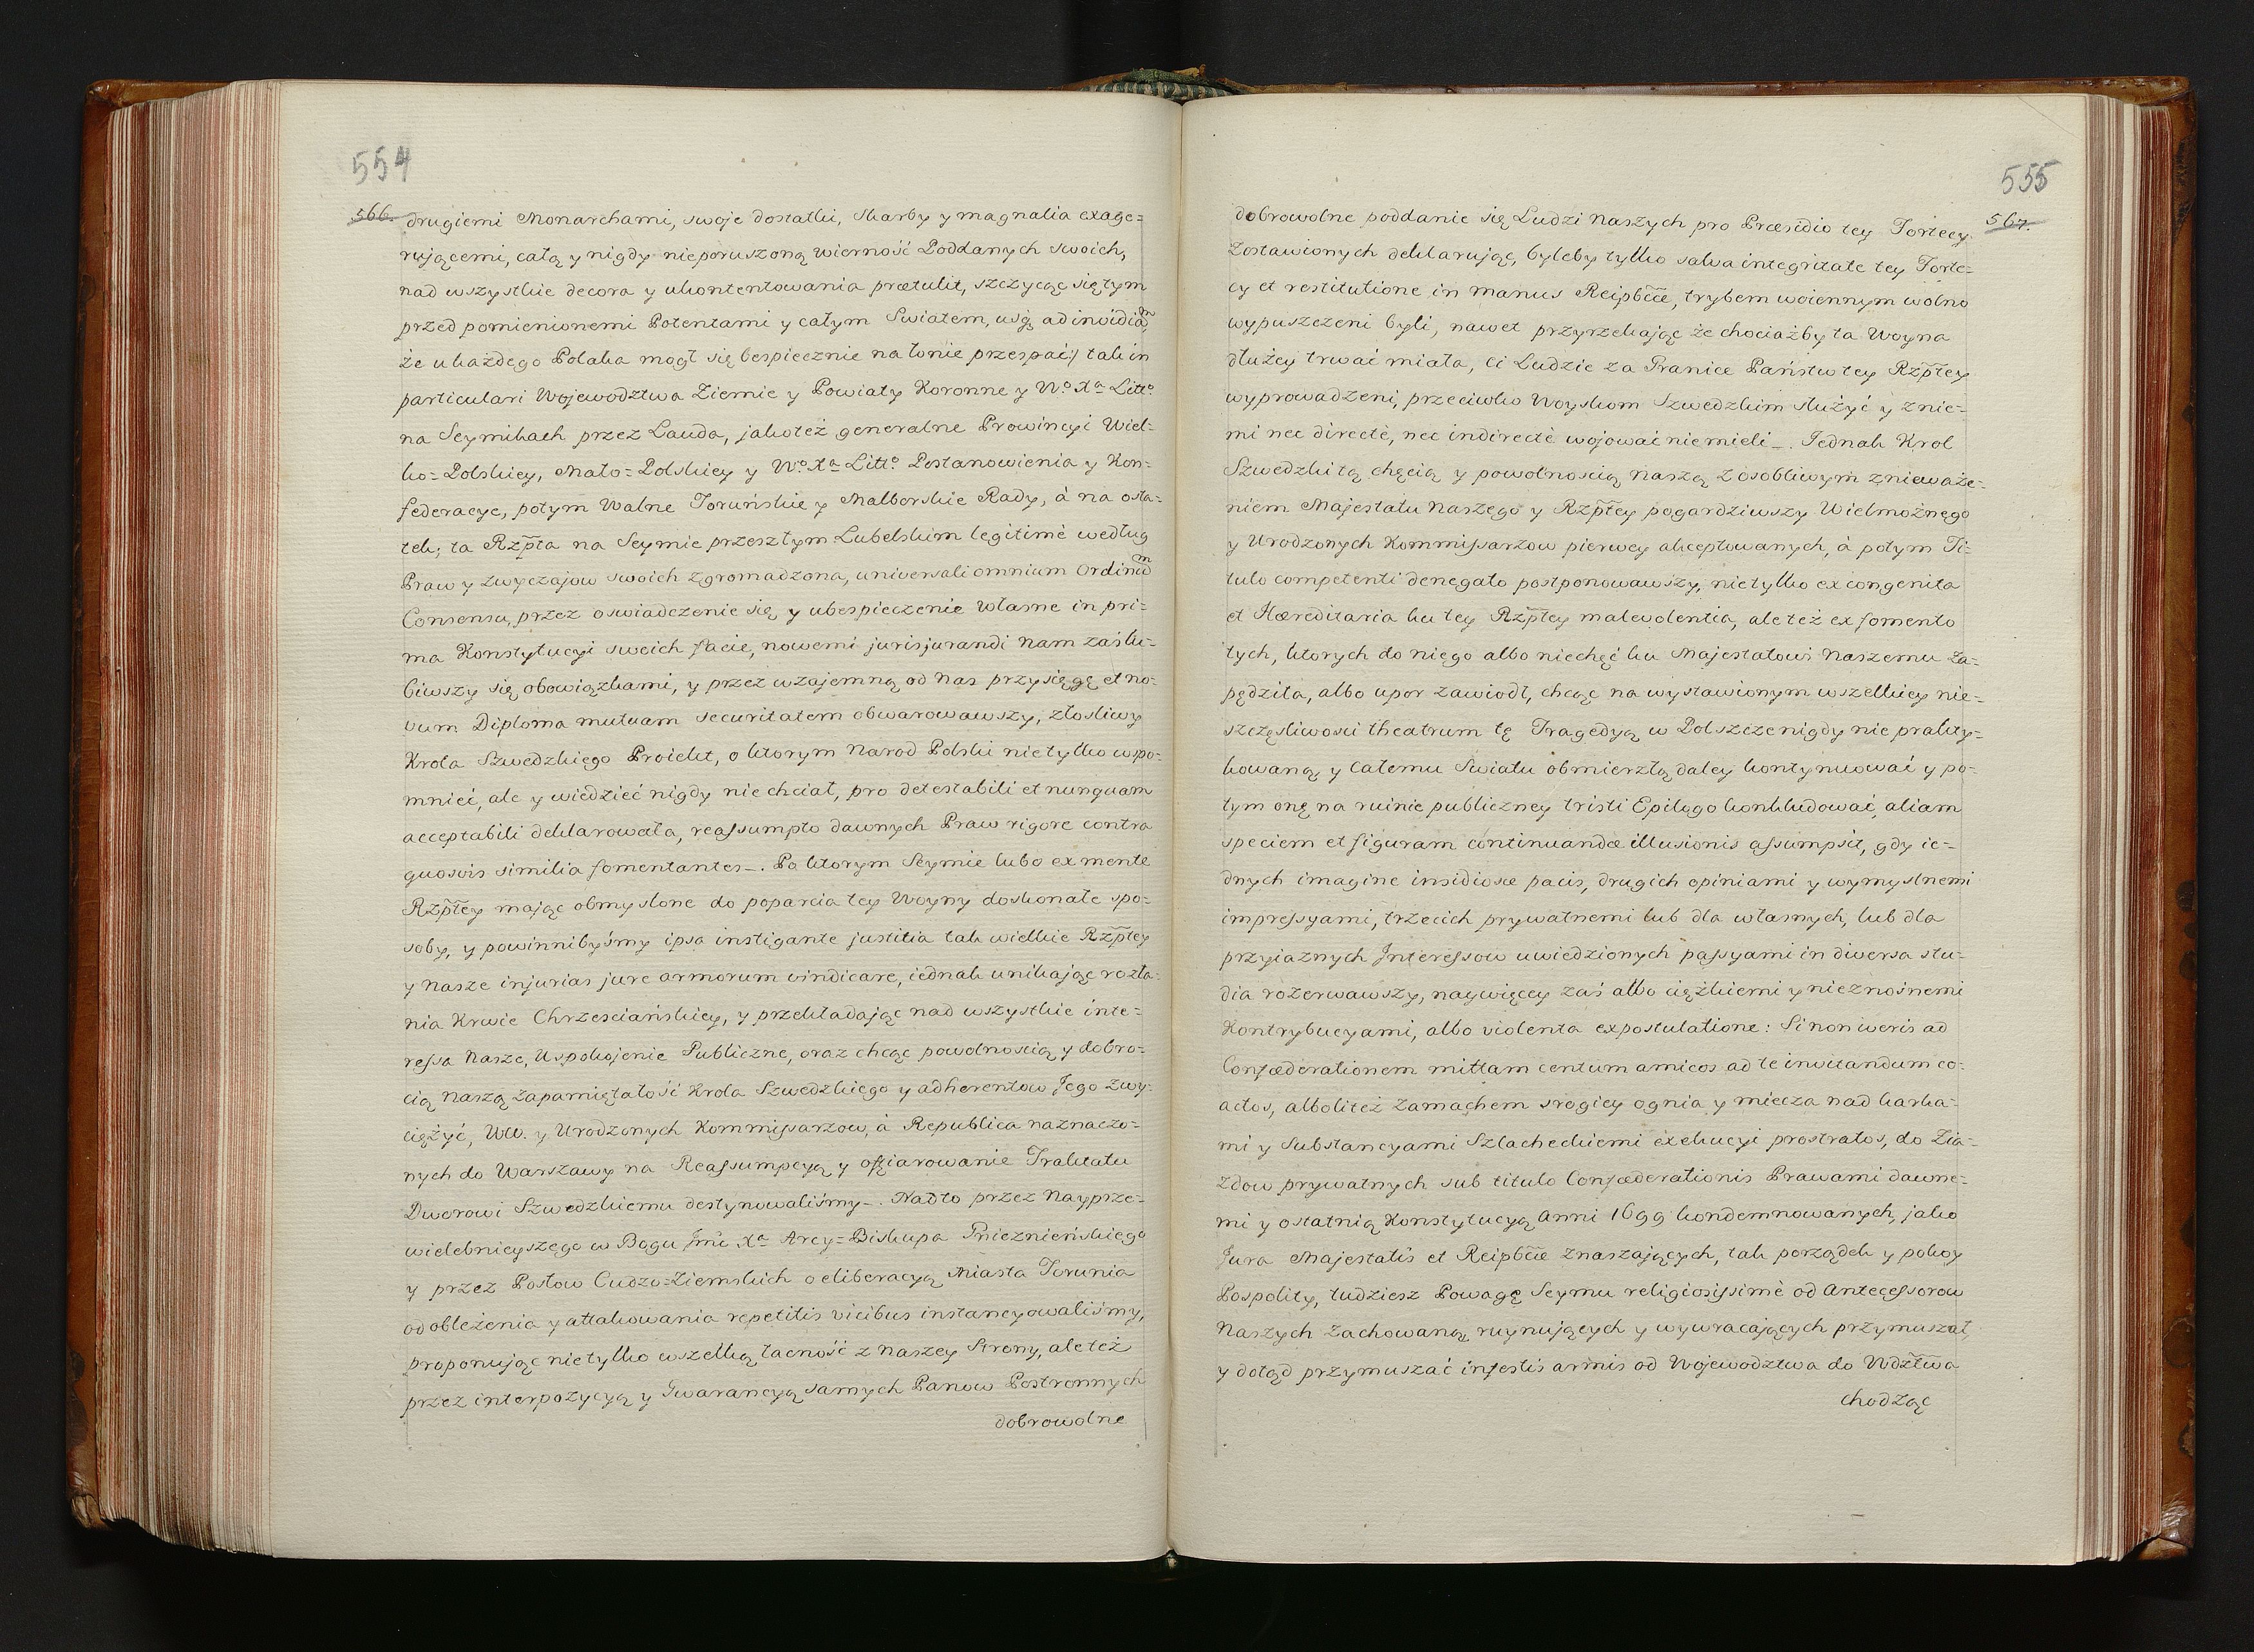 554
566.
drugiemi Monarchami, swoje dostatki, skarby y magnalia exage=
rującemi, całą y nigdy nieporuszoną wierność Poddanych swoich,
nad wszystkie decora y ukontentowania prætulit, szczycąc się tym
przed pomienionemi Potentami y całym Swiatem, usq̨ ad invidiam̃,
że u każdego Polaka mogł się bespiecznie na łonie przespać:/ tak in
particulari Wojewodztwa Ziemie y Powiaty Koronne y W.º Xª Littº
na Seymikach przez Lauda, jakoteż generalne Prowincyi Wiel=
ko=Polskiey, Mało=Polskiey y W.º Xª Littº Postanowienia y Kon=
federacye, potym Walne Toruńskie y Malborskie Rady, á na osta=
tek; ta Rzp̃ta na Seymie przeszłym Lubelskim legitimè według
Praw y zwyczajow swoich zgromadzona, universali omnium Ordinum
Consensu, przez oswiadczenie się y ubespieczenie własne in pri=
ma Konstytucyi swoich facie, nowemi jurisjurandi nam zaślu=
biwszy się obowiązkami, y przez wzajemną od nas przysięgę et no=
vum Diploma mutuam securitatem obwarowawszy, złosliwy
Krola Szwedzkiego Proiekt, o ktorym Narod Polski nie tylko wspo=
mnieć, ale y wiedzieć nigdy nie chciał, pro detestabili et nunquam
acceptabili deklarowała, reassumpto dawnych Praw rigore contra
quosvis similia fomentantes_. Po ktorym Seymie lubo ex mente
Rzp̃tey mając obmyslone do poparcia tey Woyny doskonałe spo=
soby, y powinnibyśmy ipsa instigante justitia tak wielkie Rzp̃tey
y Nasze injurias jure armorum vindicare, iednak unikając rozla=
nia Krwie Chrzesciańskiey, y przekładając nad wszystkie inte=
ressa Nasze, Uspokojenie Publiczne, oraz chcąc powolnoscią y dobro=
cią Naszą zapamiętałość Krola Szwedzkiego y adherentow Jego zwy=
ciężyć, WW. y Urodzonych Kommissarzow, à Republica naznaczo=
nych do Warszawy na Reassumpcyą y offiarowanie Traktatu
Dworowi Szwedzkiemu destynowaliśmy_. Nadto przez Nayprze=
wielebnieyszego w Bogu Jmć Xª Arcy=Biskupa Gnieznieńskiego
y przez Posłow Cudzo=Ziemskich o eliberacyą Miasta Torunia
od oblężenia y attakowania repetitis vicibus instancyowaliśmy,
proponując nie tylko wszelką łacność z naszey Strony, ale też
przez interpozycyą y Gwarancyą samych Panow Postronnych
dobrowolne
555
567.
dobrowolne poddanie się Ludzi Naszych pro Præsidio tey Fortecy
zostawionych deklarując, byleby tylko salva integritate tey Forte=
cy et restitutione in manus Reipb̃cæ, trybem woiennym wolno
wypuszczeni byli, nawet przyrzekając że chociażby ta Woyna
dłużey trwać miała, ci Ludzie za Granice Państw tey Rzp̃tey
wyprowadzeni, przeciwko Woyskom Szwedzkim służyć y z nie=
mi nec directè, nec indirectè wojować nie mieli_. Jednak Krol
Szwedzki tą chęcią y powolnoscią naszą z osobliwym znieważe=
niem Majestatu Naszego y Rzp̃tey pogardziwszy Wielmożnego
y Urodzonych Kommissarzow pierwey akceptowanych, à potym Ti=
tulo competenti denegato postponowawszy, nie tylko ex congenita
et Hæreditaria ku tey Rzp̃tey malevolentia, ale też ex fomento
tych, ktorych do niego albo niechęć ku Majestatowi Naszemu za=
pędziła, albo upor zawiodł, chcąc na wystawionym wszelkiey nie=
szczęsliwosci theatrum tę Tragedyą w Polszcze nigdy nie prakty=
kowaną y całemu Swiatu obmierzłą daley kontynuować y po=
tym onę na ruinie publiczney tristi Epilogo konkludować, aliam
speciem et figuram continuandæ illusionis assumpsit, gdy ie=
dnych imagine insidiosæ pacis, drugich opiniami y wymyslnemi
impressyami, trzecich prywatnemi lub dla własnych, lub dla
przyiaznych Interessow uwiedzionych passyami in diversa stu=
dia rozerwawszy, naywięcey zaś albo ciężkiemi y nieznośnemi
Kontrybucyami, albo violenta expostulatione: Si non iveris ad
Confæderationem mittam centum amicos ad te invitandum co=
actos, albo liteż zamachem srogiey ognia y miecza nad karka=
mi y Substancyami Szlacheckiemi exekucyi prostratos, do Zia=
zdow prywatnych sub titulo Confæderationis Prawami dawne=
mi y ostatnią Konstytucyą Anni 1699 kondemnowanych, jako
Jura Majestatis et Reipb̃cæ znaszających, tak porządek y pokoy
Pospolity, tudziesz Powagę Seymu religiosissimè od Antecessorow
Naszych zachowaną ruynujących y wywracających przymuszał,
y dotąd przymuszać infestis armis od Wojewodztwa do Wdz̃twa
chodząc